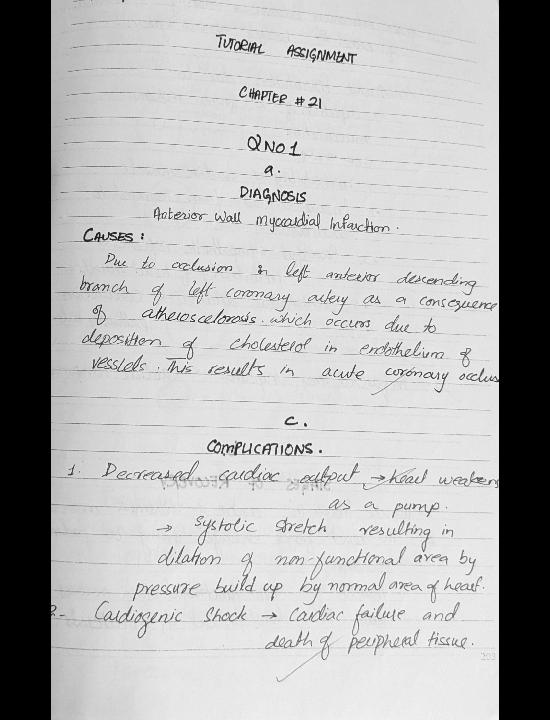 TUTORIAL ASSIGNMENT
CHAPTER # 21
Q NO 1
a.
DIAGNOSIS
Anterior Wall Myocardial Infarction.
CAUSES :
Due to occlusion in left anterior descending
branch of left coronary artery as a consequence
of atheroscelorosis. which occurs due to
deposition of cholesterol in endothelium of
vesslels. This results in acute coronary occlus
c.
COMPLICATIONS.
1. Decreased cardiac output → heart weakens
as a pump.
→ systolic stretch resulting in
dilation of non-functional area by
pressure build up by normal area of heart.
2- Cardiogenic shock → cardiac failure and
death of peripheral tissue.